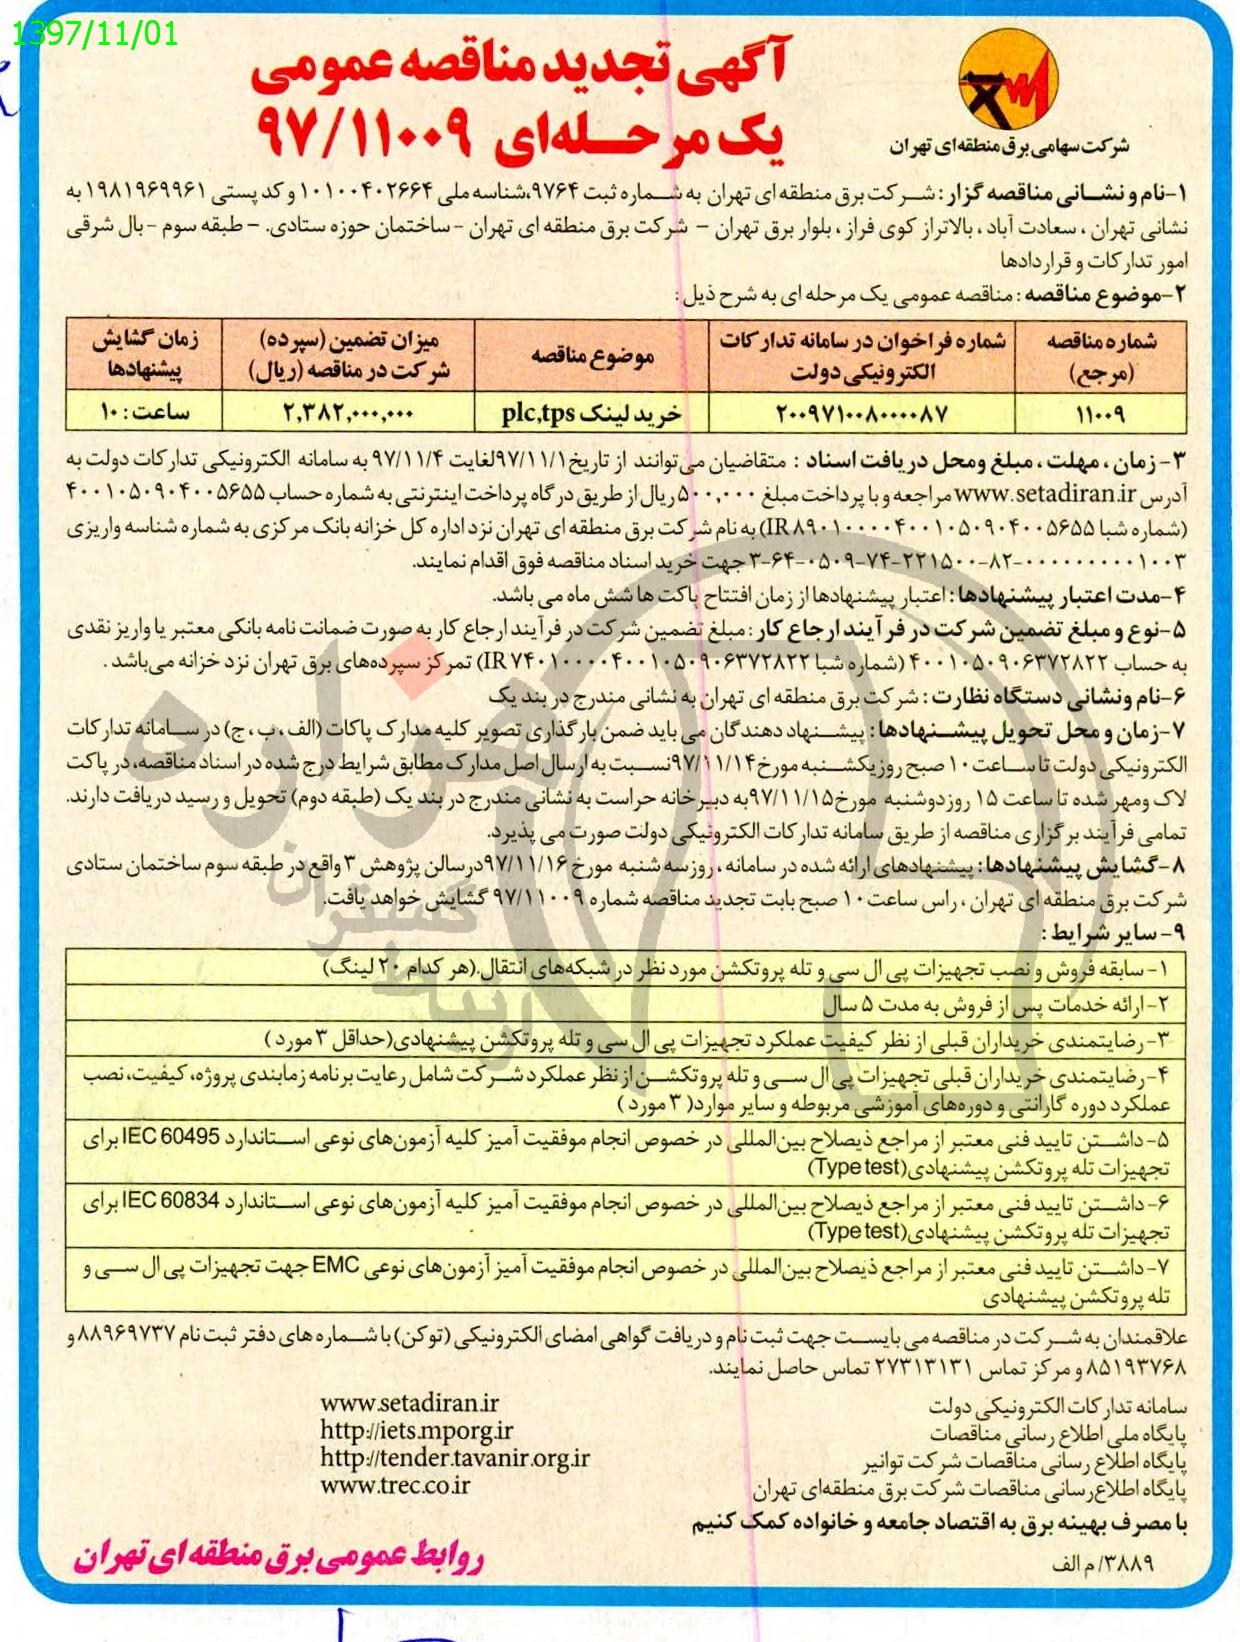 1397/11/01
آگهی تجدید مناقصه عمومی
یک مرحله‌ای ۹۷/۱۱۰۰۹
شرکت سهامی برق منطقه‌ای تهران
۱-نام و نشانی مناقصه گزار: شرکت برق منطقه ای تهران به شماره ثبت ۹۷۶۴،شناسه ملی ۱۰۱۰۰۴۰۲۶۶۴ و کد پستی ۱۹۸۱۹۶۹۹۶۱ به
نشانی تهران ، سعادت آباد ، بالاتراز کوی فراز ، بلوار برق تهران – شرکت برق منطقه ای تهران -ساختمان حوزه ستادی. – طبقه سوم -بال شرقی
امور تدارکات و قراردادها
۲-موضوع مناقصه: مناقصه عمومی یک مرحله ای به شرح ذیل:
شماره مناقصه (مرجع) شماره فراخوان در سامانه تدارکات الکترونیکی دولت موضوع مناقصه میزان تضمین (سپرده) شرکت در مناقصه (ریال) زمان گشایش پیشنهادها
۱۱۰۰۹ ۲۰۰۹۷۱۰۰۸۰۰۰۰۸۷ خرید لینک plc,tps ۲,۳۸۲,۰۰۰,۰۰۰ ساعت: ۱۰
۳- زمان ، مهلت ، مبلغ ومحل دریافت اسناد : متقاضیان می‌توانند از تاریخ۹۷/۱۱/۱لغایت ۹۷/۱۱/۴ به سامانه الکترونیکی تدارکات دولت به
آدرس www.setadiran.ir مراجعه و با پرداخت مبلغ ۵۰۰,۰۰۰ ریال از طریق درگاه پرداخت اینترنتی به شماره حساب ۴۰۰۱۰۵۰۹۰۴۰۰۵۶۵۵
(شماره شبا IR۸۹۰۱۰۰۰۰۴۰۰۱۰۵۰۹۰۴۰۰۵۶۵۵) به نام شرکت برق منطقه ای تهران نزد اداره کل خزانه بانک مرکزی به شماره شناسه واریزی
جهت خرید اسناد مناقصه فوق اقدام نمایند.
۴-مدت اعتبار پیشنهادها: اعتبار پیشنهادها از زمان افتتاح پاکت ها شش ماه می باشد.
۵-نوع و مبلغ تضمین شرکت در فرآیند ارجاع کار: مبلغ تضمین شرکت در فرآیند ارجاع کار به صورت ضمانت نامه بانکی معتبر یا واریز نقدی
به حساب ۴۰۰۱۰۵۰۹۰۶۳۷۲۸۲۲ (شماره شبا IR۷۴۰۱۰۰۰۰۴۰۰۱۰۵۰۹۰۶۳۷۲۸۲۲) تمرکز سپرده‌های برق تهران نزد خزانه می‌باشد .
۶-نام ونشانی دستگاه نظارت: شرکت برق منطقه ای تهران به نشانی مندرج در بند یک
۷-زمان و محل تحویل پیشنهادها: پیشنهاد دهندگان می باید ضمن بارگذاری تصویر کلیه مدارک پاکات (الف ،ب ، ج) در سامانه تدارکات
الکترونیکی دولت تا ساعت ۱۰ صبح روز یکشنبه مورخ ۹۷/۱۱/۱۴نسبت به ارسال اصل مدارک مطابق شرایط درج شده در اسناد مناقصه، در پاکت
لاک ومهر شده تا ساعت ۱۵ روز دوشنبه مورخ۹۷/۱۱/۱۵به دبیرخانه حراست به نشانی مندرج در بند یک (طبقه دوم) تحویل و رسید دریافت دارند.
تمامی فرآیند برگزاری مناقصه از طریق سامانه تدارکات الکترونیکی دولت صورت می پذیرد.
۸-گشایش پیشنهادها: پیشنهادهای ارائه شده در سامانه ، روز سه شنبه مورخ ۹۷/۱۱/۱۶درسالن پژوهش ۳ واقع در طبقه سوم ساختمان ستادی
شرکت برق منطقه ای تهران ، راس ساعت ۱۰ صبح بابت تجدید مناقصه شماره ۹۷/۱۱۰۰۹ گشایش خواهد یافت.
۹- سایر شرایط:
۱- سابقه فروش و نصب تجهیزات پی ال سی و تله پروتکشن مورد نظر در شبکه‌های انتقال.(هر کدام ۲۰ لینگ)
۲-ارائه خدمات پس از فروش به مدت ۵ سال
۳- رضایتمندی خریداران قبلی از نظر کیفیت عملکرد تجهیزات پی ال سی و تله پروتکشن پیشنهادی(حداقل ۳ مورد )
۴-رضایتمندی خریداران قبلی تجهیزات پی ال سی و تله پروتکشن از نظر عملکرد شرکت شامل رعایت برنامه زمابندی پروژه، کیفیت، نصب
عملکرد دوره گارانتی و دوره‌های آموزشی مربوطه و سایر موارد( ۳ مورد )
۵- داشتن تایید فنی معتبر از مراجع ذیصلاح بین‌المللی در خصوص انجام موفقیت آمیز کلیه آزمون‌های نوعی استاندارد IEC 60495 برای
تجهیزات تله پروتکشن پیشنهادی(Type test)
۶- داشتن تایید فنی معتبر از مراجع ذیصلاح بین‌المللی در خصوص انجام موفقیت آمیز کلیه آزمون‌های نوعی استاندارد IEC 60834 برای
تجهیزات تله پروتکشن پیشنهادی(Type test)
۷- داشتن تایید فنی معتبر از مراجع ذیصلاح بین‌المللی در خصوص انجام موفقیت آمیز آزمون‌های نوعی EMC جهت تجهیزات پی ال سی و
تله پروتکشن پیشنهادی
علاقمندان به شرکت در مناقصه می بایست جهت ثبت نام و دریافت گواهی امضای الکترونیکی (توکن) با شماره های دفتر ثبت نام ۸۸۹۶۹۷۳۷ و
۸۵۱۹۳۷۶۸ و مرکز تماس ۲۷۳۱۳۱۳۱ تماس حاصل نمایند.
سامانه تدارکات الکترونیکی دولت www.setadiran.ir
پایگاه ملی اطلاع رسانی مناقصات http://iets.mporg.ir
پایگاه اطلاع رسانی مناقصات شرکت توانیر http://tender.tavanir.org.ir
پایگاه اطلاع‌رسانی مناقصات شرکت برق منطقه‌ای تهران www.trec.co.ir
با مصرف بهینه برق به اقتصاد جامعه و خانواده کمک کنیم
۳۸۸۹/ م الف
روابط عمومی برق منطقه ای تهران